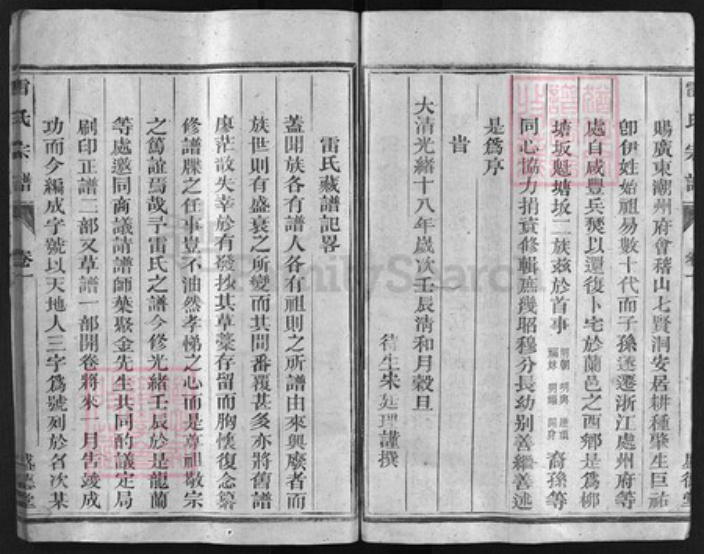 賜廣東潮州府會稽山七賢洞安居耕種肇生巨祐
卽伊姓始祖易數十代而子孫遂遷浙江處州府等
處自咸豐兵燹以還復卜宅於蘭邑之西鄉是爲柳
塘坂魁塘坂二族茲於首事 裔孫等
同心協力捐資修輯庶幾昭穆分長幼别善繼善述
是爲序
旹
大清光緒十八年歲次壬辰清和月穀旦
待生朱延理謹撰
雷氏宗譜 卷一
雷氏藏譜記畧
蓋聞族各有譜人各有祖則之所譜由來興廢者而
族世則有盛衰之所變而其間番覆甚多亦將舊譜
廖茫散失幸於有發拔其草藁存留而胸懷復念纂
修譜牒之任事豈不油然孝悌之心而是尊祖敬宗
之篤誼焉哉予雷氏之譜今修光緒壬辰於是龍蘭
等處邀同商議請譜師葉聚金先生共同酌議定局
刷印正譜二部又草譜一部開卷將來一月告竣成
功而今編成字號以天地人三字爲號列於各次某